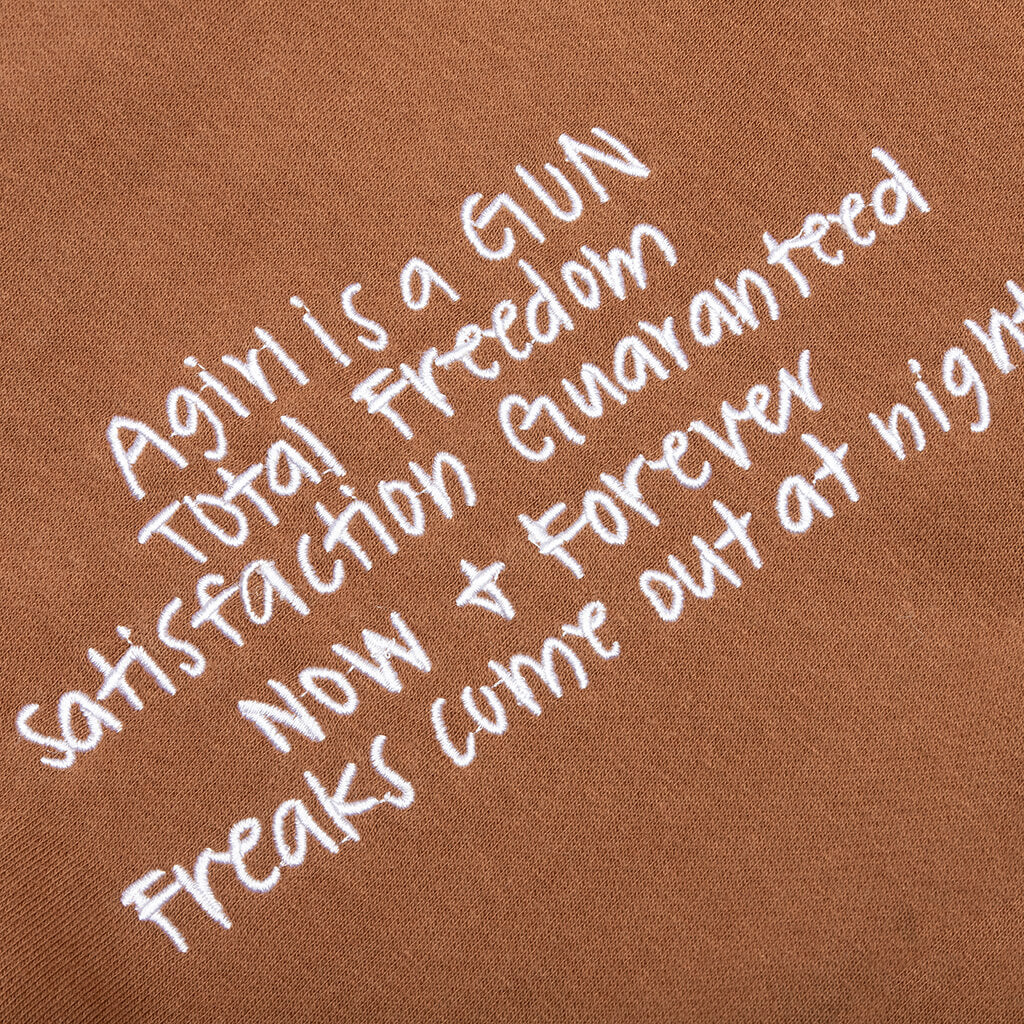 A girl is a GUN
Total Freedom
Satisfaction Guaranteed
Now + Forever
Freaks come out at night